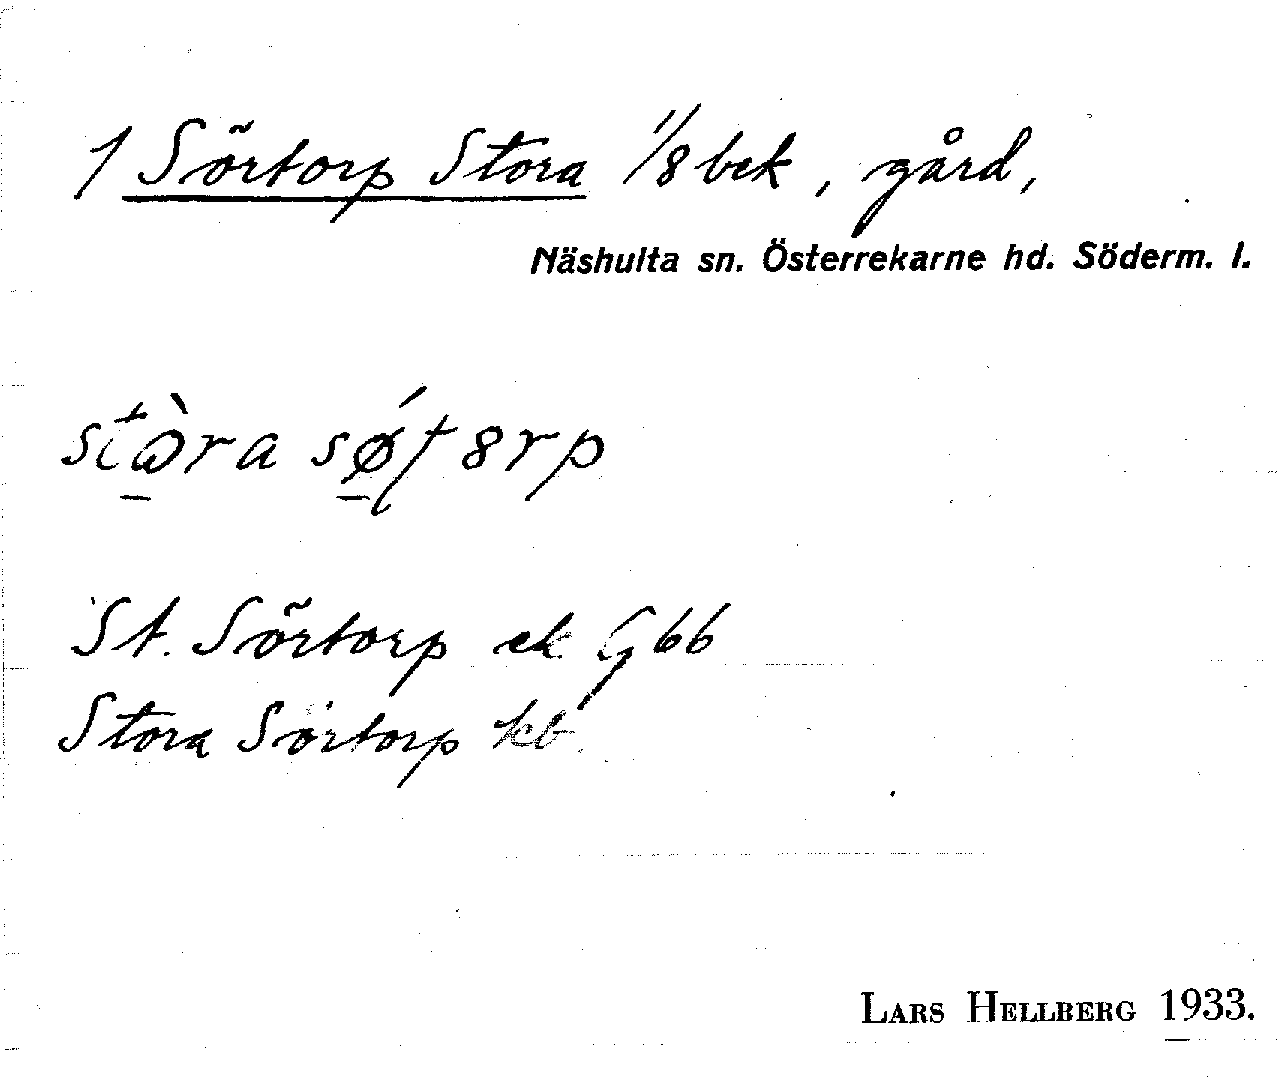 1 Sörtorp Stora 1/8 bek, gård,
Näshulta sn. Österrekarne hd. Söderm. l.
stora
St. Sörtorp ek G66
Stora Sörtorp kb
LARS HELLBERG 1933.